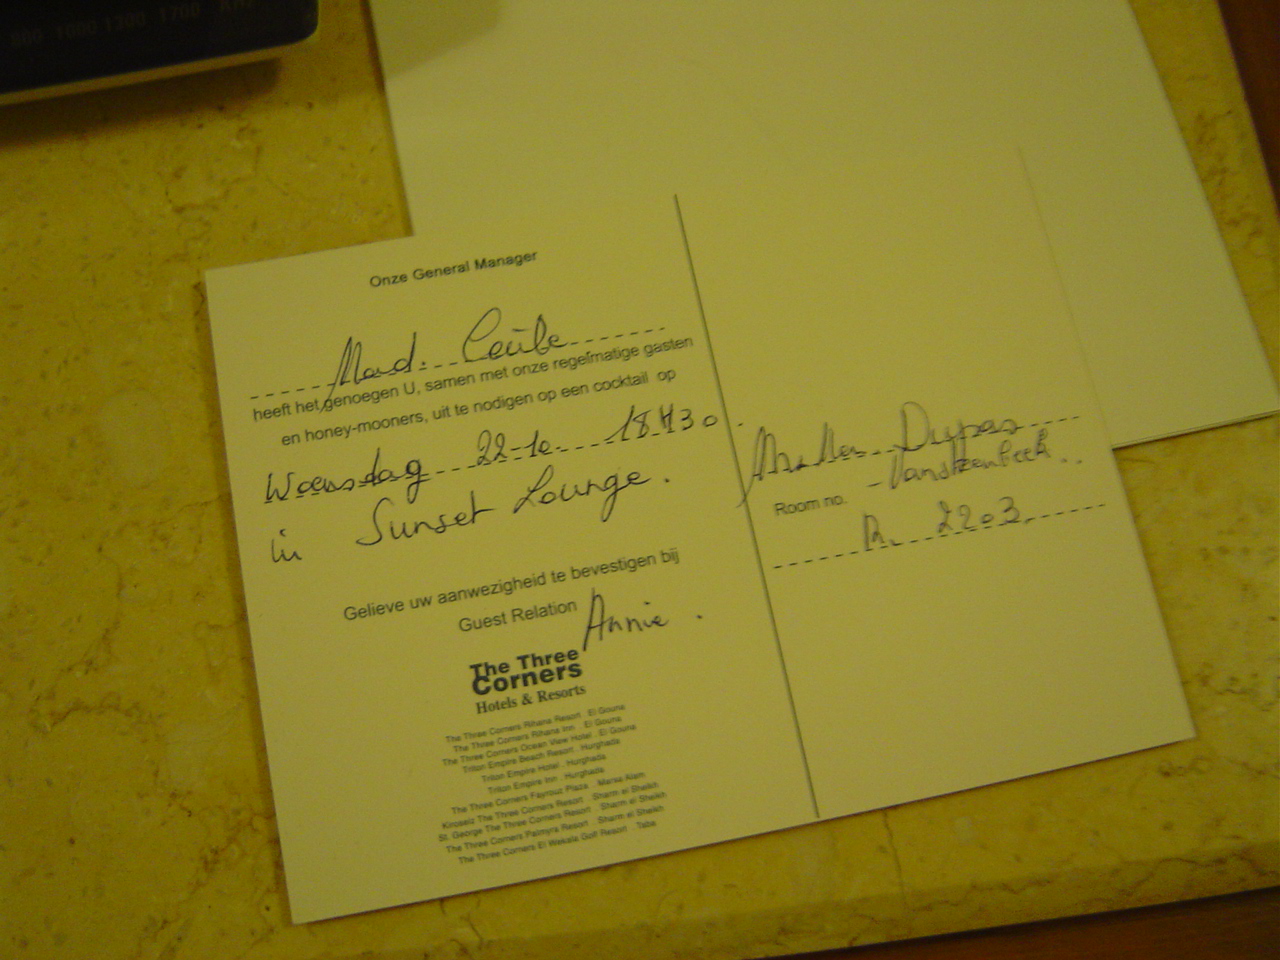 1000 1300 1200 KHz
Onze General Manager
Mad. Cécile
heeft het genoegen U, samen met onze regelmatige gasten
en honey-mooners, uit te nodigen op een cocktail op
Woensdag 22-10 18H30
in Sunset Lounge.
Gelieve uw aanwezigheid te bevestigen bij
Guest Relation Annie.
The Three
Corners
Hotels & Resorts
The Three Corners Rihana Resort . El Gouna
The Three Corners Rihana Inn . El Gouna
The Three Corners Ocean View Hotel . El Gouna
Triton Empire Beach Resort . Hurghada
Triton Empire Hotel . Hurghada
Triton Empire Inn . Hurghada
The Three Corners Fayrouz Plaza . Marsa Alam
Kiroseiz The Three Corners Resort . Sharm el Sheikh
St. George The Three Corners Resort . Sharm el Sheikh
The Three Corners Palmyra Resort . Sharm el Sheikh
The Three Corners El Wekala Golf Resort . Taba
Vansteenbeek
Room no.
R. 2203